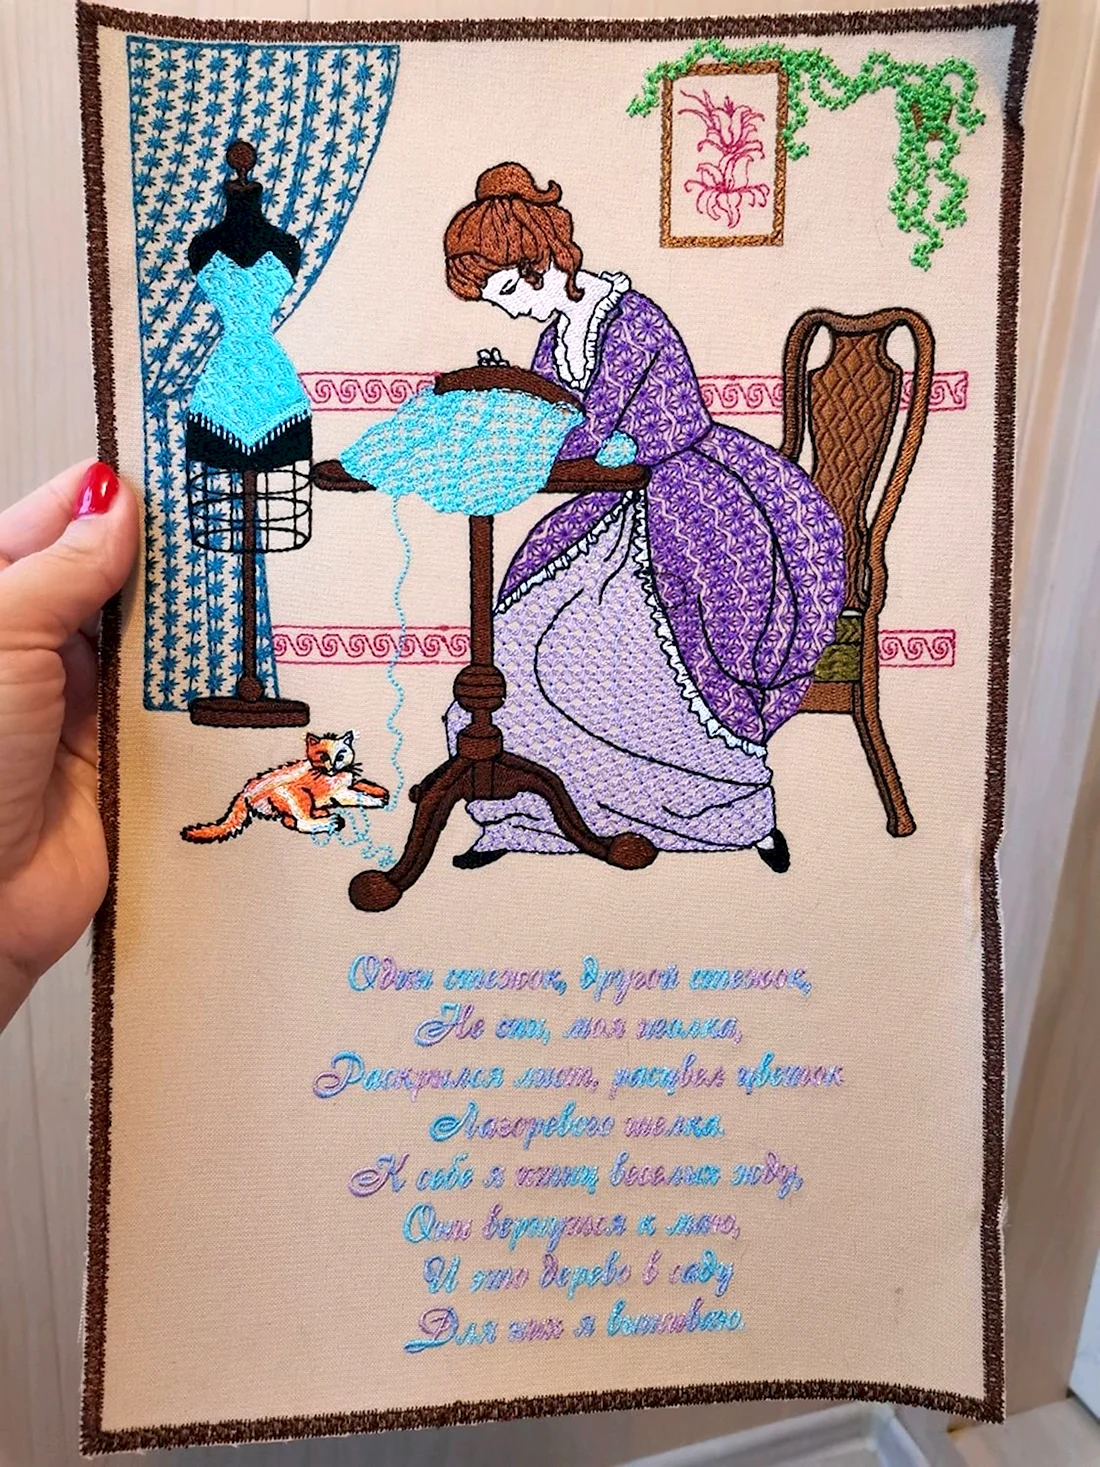 Один стежок, другой стежок,
Не спи, моя иголка,
Раскрылся лист, расцвел цветок
Лазоревого шелка.
К себе я птиц веселых жду,
Они вернутся к маю,
И это дерево в саду
Для них я вышиваю.